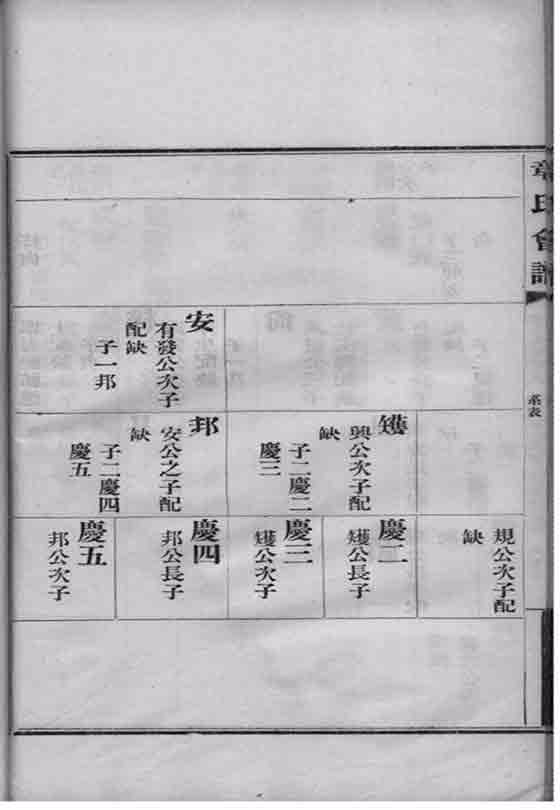 章氏會譜
系表
安
有發公次子
配缺
子一邦
矱
興公次子配
缺
子二慶二
慶三
邦
安公之子配
缺
子二慶四
慶五
規公次子配
缺
慶二
矱公長子
慶三
矱公次子
慶四
邦公長子
慶五
邦公次子